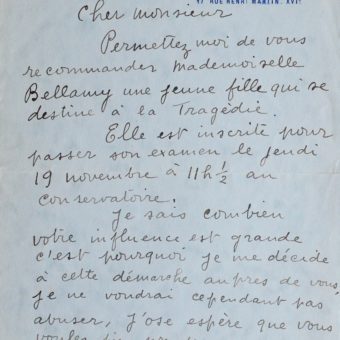 17 RUE HENRI MARTIN. XVIe
Cher monsieur
Permettez moi de vous
recommander Mademoiselle
Bellamy une jeune fille qui se
destine à la Tragédie.
Elle est inscrite pour
passer son examen le jeudi
19 novembre à 11h ½ au
conservatoire.
Je sais combien
votre influence est grande
c'est pourquoi je me décide
à cette démarche aupres de vous,
je ne voudrai cependant pas
abuser, J'ose espère que vous